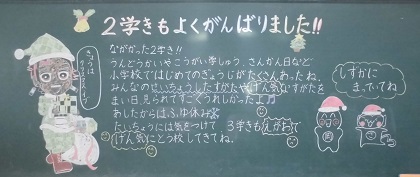 2学きもよくがんばりました!!
ながかった2学き!!
うんどうかいやこうがい学しゅう、さんかん日など
小学校ではじめてのぎょうじがたくさんあったね。
みんなのせいちょうしたすがたやげん気なすがたを
まい日見られてすごくうれしかったよ♪
あしたからはふゆ休み
たいちょうには気をつけて 3学きもえがおで
げん気にとう校してきてね。
きょうは
しずかに
まっててね